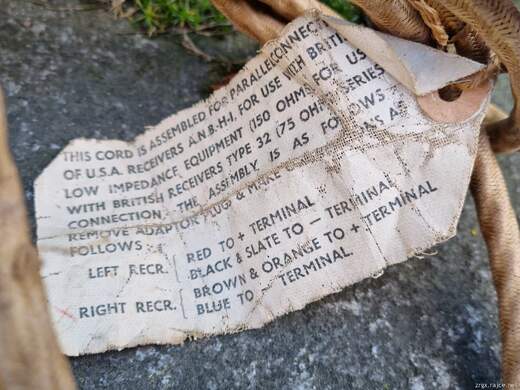 THIS CORD IS ASSEMBLED FOR PARALLEL CONNEC
OF U.S.A. RECEIVERS A.N.B.-H-I. FOR USE WITH BRITI
LOW IMPEDANCE EQUIPMENT (150 OHMS FOR US
WITH BRITISH RECEIVERS TYPE 32 (75 OHM SERIES
CONNECTION. THE ASSEMBLY IS AS FOLLOWS
REMOVE ADAPTOR PLUG & MAKE AS
FOLLOWS :
LEFT RECR. { RED TO + TERMINAL
BLACK & SLATE TO — TERMINAL
RIGHT RECR. { BROWN & ORANGE TO + TERMINAL
BLUE TO TERMINAL.
zrgx.rajce.net